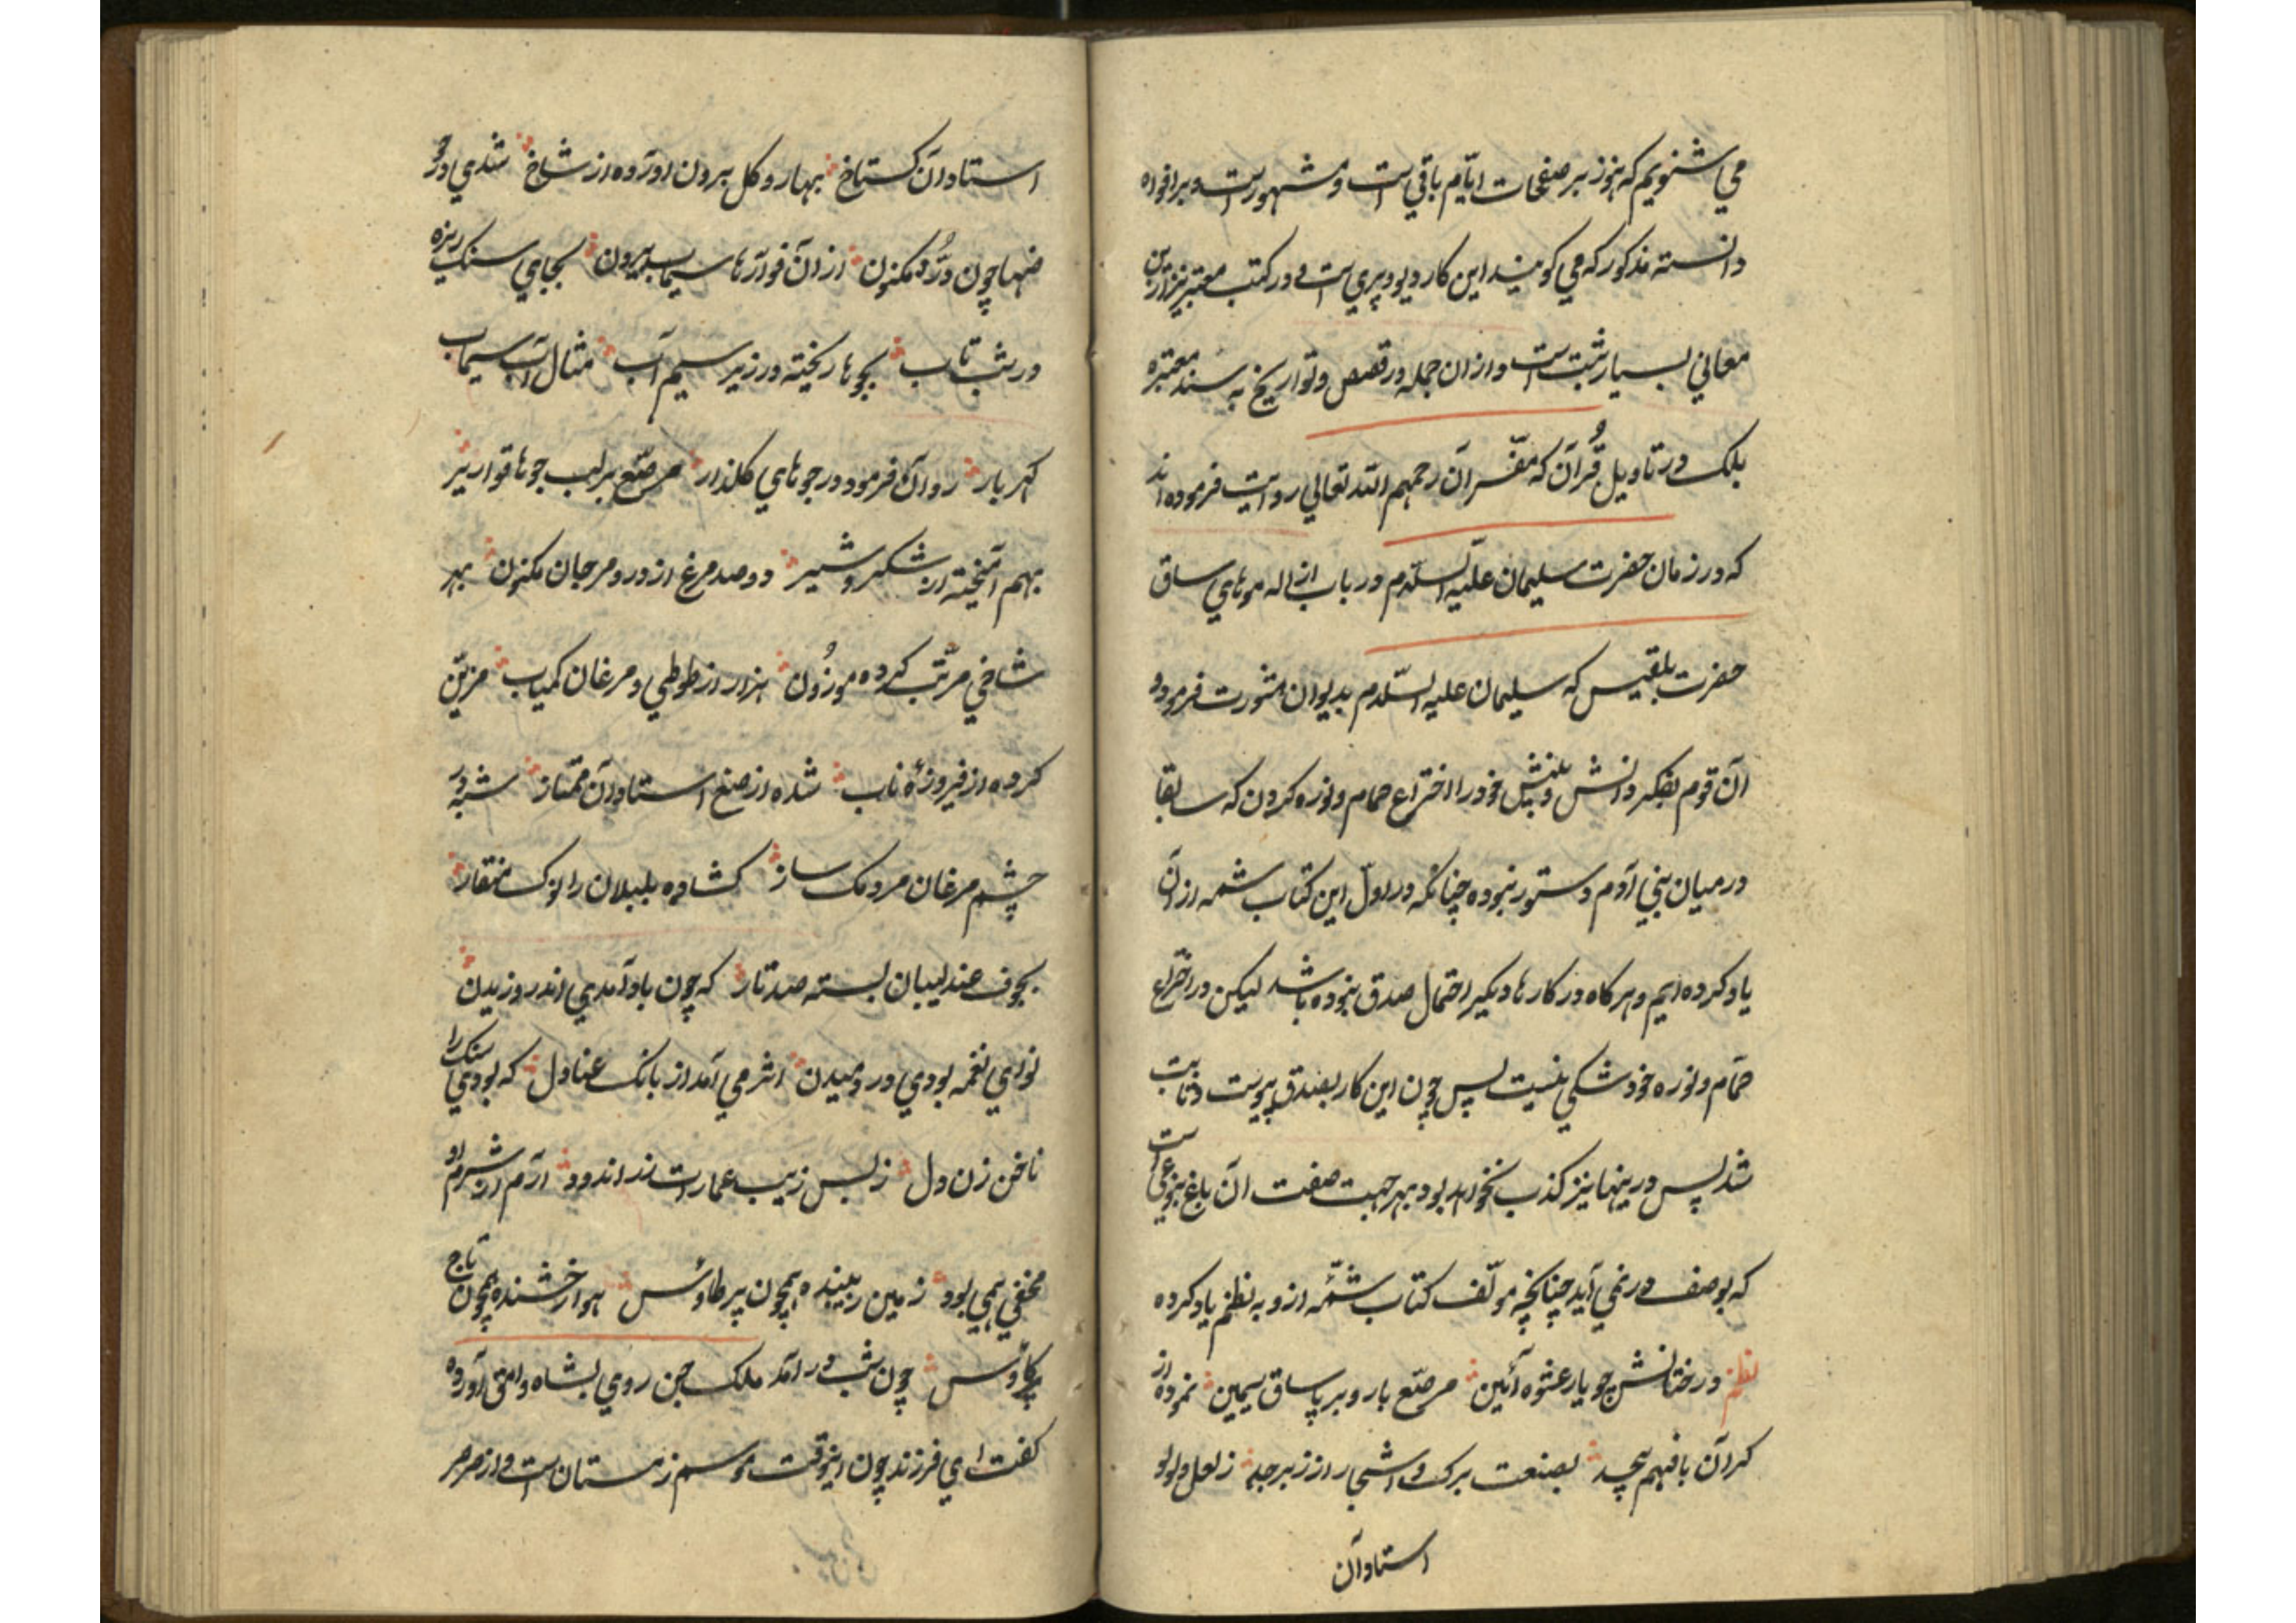 می شنویم که هنوز بر صفحات ایّام باقی است و مشهور است و بر افواه
دانسته مذکور که می کویند این کار دیو و پری است و در کتب معتبر نیز ازین
معانی بسیار ثبت است و از ان جمله در قصص و تواریخ به سند معتبره
بلک در تاویل قُرآن که مفّسرآن رحمهم اللّه تعالی روایت فرموده اند
که در زمان حضرت سلیمان علیه السّلام در باب ازاله موهای ساق
حضرت بلقیس که سلیمان علیه السّلام بدیوان مشورت فرمود و
آن قوم بفکر و دانش و بینش خود را اختراع حمام و نوره کردن که سابقا
در میان بنی آدم دستور نبوده چنانکه در اوّل این کتاب شمه از آن
یاد کرده ایم و هر کاه در کارها دیکر احتمال صدق نبوده باشد لیکن در اختراع
حمّام و نوره خود شکی نیست پس چون این کار بصدق پیوست و ثابت
شد پس درینها نیز کذب نخواهد بود بهر جهت صفت آن باغ بنوعی است
که بوصف در نمی آید چنانچه مولّف کتاب شمّه ازو به نظم یاد کرده
نظم درختانش چو یار عشوه آئین مرصّع بار و بر پا ساق سیمین نمرده از
کرآن با فهم بیحد بصنعت برک و اشجار از زبرجد ز لعل و لولو
استادآن
استادآن کستاخ بهار و کل برون اورده از شاخ شدی در
ضها چون دُرّ مکنون از آن فوارّها سیماب بیرون بجای سنک ریزه
در شب تاب بجوها ریخته در زیر سیم آب مثال آب سیماب
کهر بار روان فرمود در جوهای کلذار مرصّع بر لب جوها قواریر
بهم آمیخته از شکر و شیر دو صد مرغ از در و مرجان مکنون بهر
شاخی مرتّب کرده موزُون هزار از طوطی و مرغان کمیاب مزیّن
کرده از فیروزهٔ ناب شده از صنع استادآن ممّتاز شبه در
چشم مرغان مردمک ساز کشاده بلبلان را نوک منقار
بجوف عندلیبان بسته صد تار که چون باد آمدی اندر وزیدن
نوای نغمه بودی در دمیدن اثر می آمد از بانک عنادل که بودی سنک را
ناخن زن دل ز بس زیب عمارت زر اندود ارم از شرم او
مخفی همی بود زمین زیبنده همچون پر طاوٗس هوا رخشنده همچون تاج
کاوٗس چون شب در امد ملک جن روی بشاه وامق آورده
کفت ای فرزند چون اینوقت موسم زمستان است و از صرصر